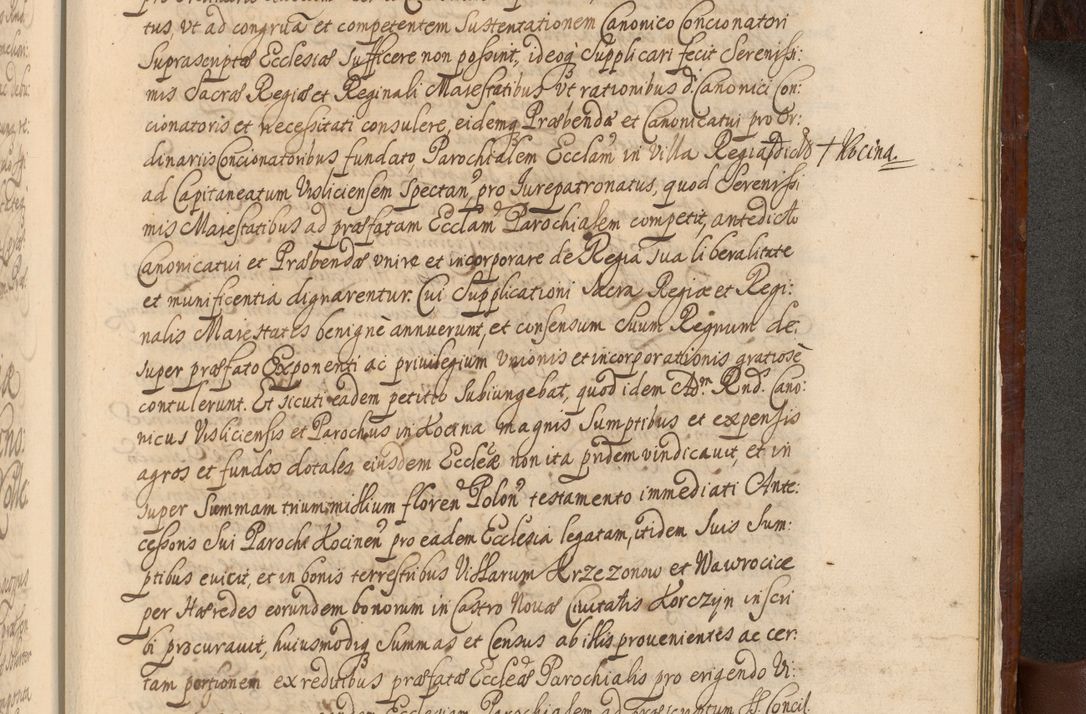 tus, vt ad congruã et competentem Sustentationem Canonico Concionatori
Suprascriptæ Ecclesiæ Sufficere non possint, ideoq Supplicari fecit Serenissi:
mis Sacræ Regiæ et Reginali Maiestatibus Vt rationibus d. Canonici Con:
cionatoris et necessitati consulere, eidemq Præbendæ et Canonicatui pro Or:
dinariis Concionatoribus fundato, Parochialem Ecclam in Villa Regia dicta † Kocina.
ad Capitaneatum Visliciensem Spectan, pro Iurepatronatus, quod Serenissi
mis Maiestatibus ad præfatam Ecclam Parochialem competit, antedicto
Canonicatui et Præbendæ vnire et incorporare de Regia Sua liberalitate
et munificentia dignarentur. Cui Supplicationi Sacra Regiæ et Regi:
nalis Maiestates benignè annuerunt, et consensum Suum Regium de:
super præfato Exponenti ac privilegium Vnionis et incorporationis gratiosè
contulerunt. Et sicuti eadem petitio Subiungebat, quod idem Adm. Rnd. Cano:
nicus Visliciensis et Parochus in Kocina magnis Sumptibus et expensis
agros et fundos dotales eiusdem Eccleæ non ita pridem vindicauit, et in
super Summam trium millium floren Polon testamento immediati Ante:
cessoris Sui Parochi Kocinen pro eadem Ecclesia legatam, itidem Suis Sum:
ptibus euicit, et in bonis terrestribus Villarum Krzezonow et Wawrocice
per Hæredes eorundem bonorum in Castro Nouæ Ciuitatis Korczyn inscri
bi procurauit, huiusmodiq Summas et Census ab illis prouenientes ac cer:
tam portionem ex reditibus præfatæ Eccleæ Parochialis pro erigendo Vi:
Ecclesiam Parochialem ad præscriptum SS. Concil.